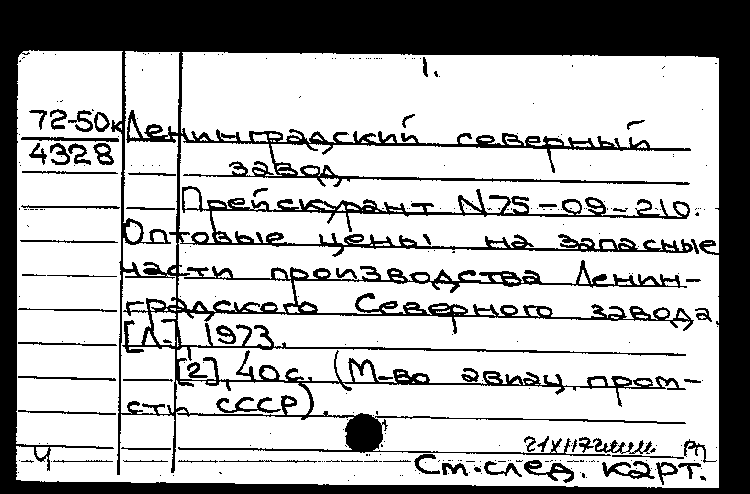 1.
72-50к Ленинградский северный
4328 завод.
Прейскурант N75-09-210.
Оптовые цены на запасные
части производства Ленин-
градского Северного завода.
[Л.], 1973.
[2], 40с. (М-во авиац. пром-
сти СССР).
РП
Ч См. след. карт.